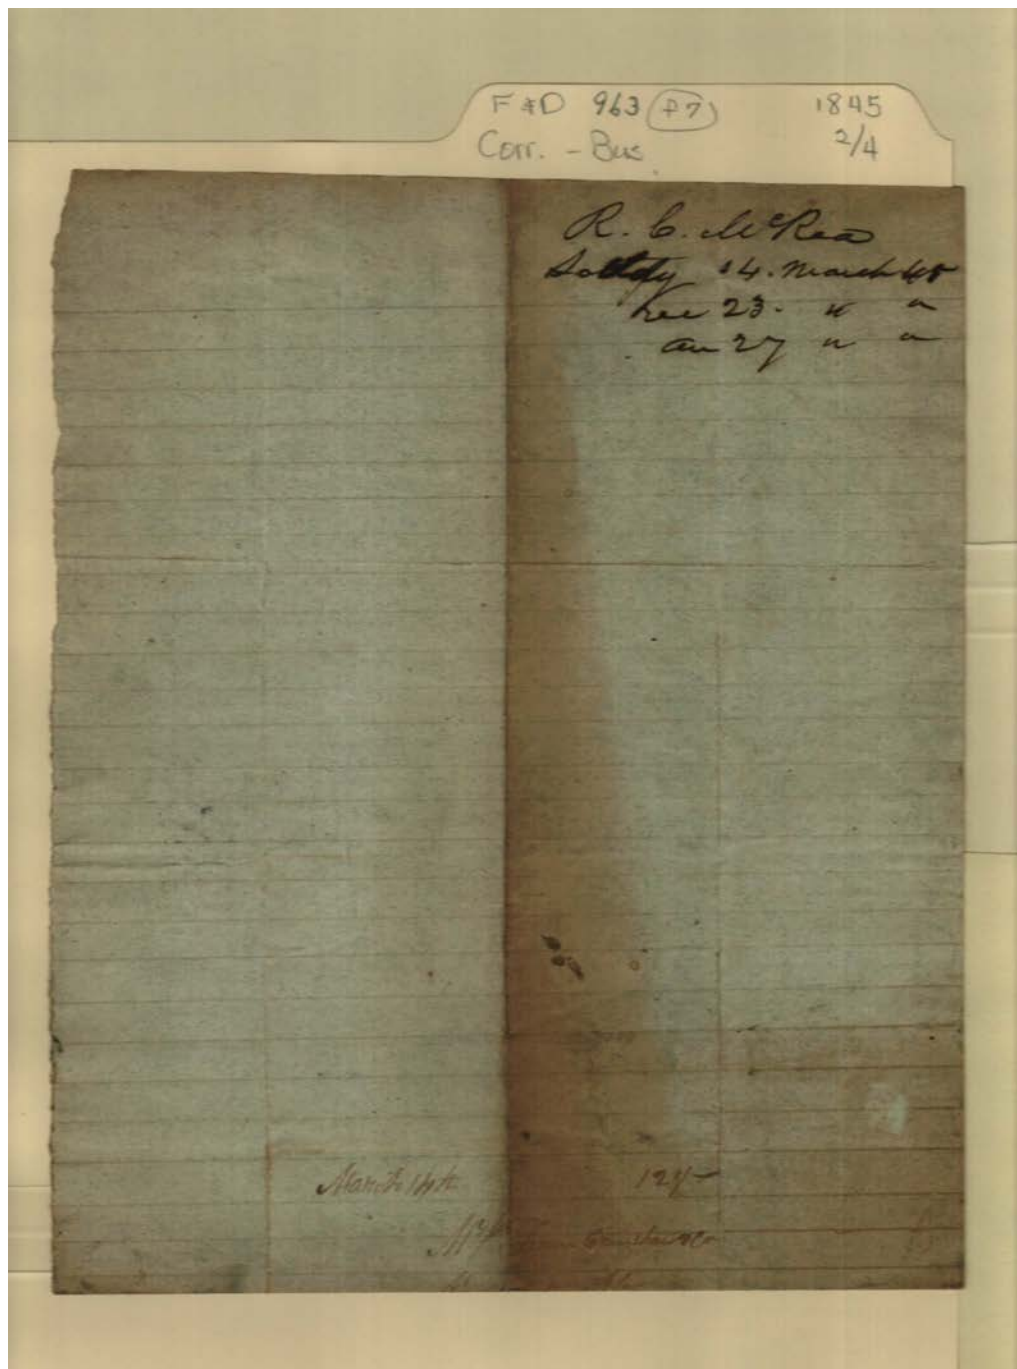 F&D 963 (f7) 1845
Corr. - Bus 2/4
R. C. McRea
14. March 45
Rec 23. " "
an 27 " "
March 14th 12½